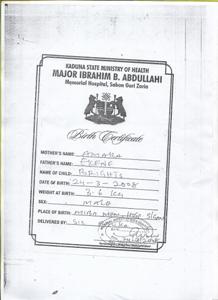 KADUNA STATE MINISTRY OF HEALTH
MAJOR IBRAHIM B. ABDULLAHI
Memorial Hospital, Sabon Gari Zaria
Birth Certificate
MOTHER'S NAME: AMAKA
FATHER'S NAME: EKENE
NAME OF CHILD: BRIGHTS
DATE OF BIRTH: 24-3-2008
WEIGHT AT BIRTH: 3.6 KG
SEX: MALE
PLACE OF BIRTH:
DELIVERED BY: SIS